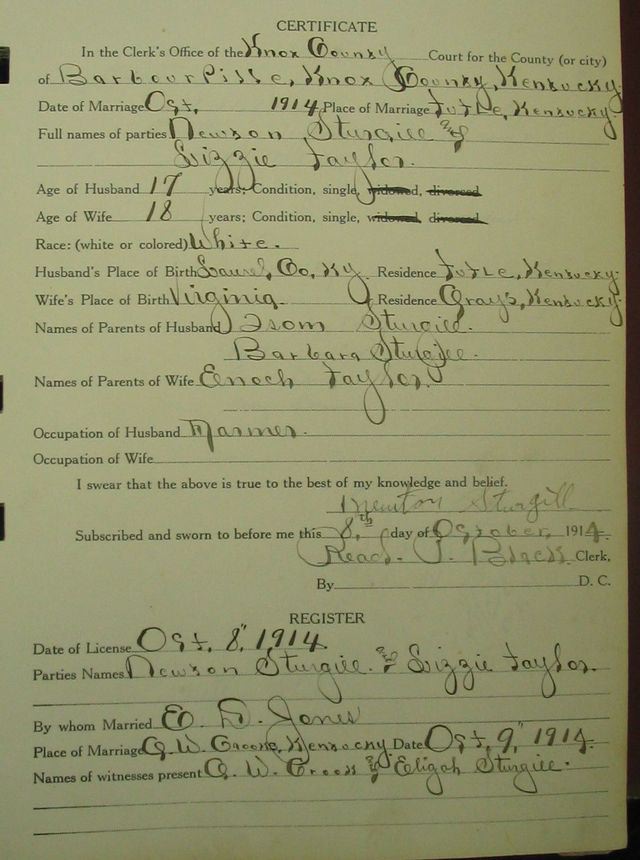 CERTIFICATE
In the Clerk's Office of the Knox County Court for the County (or city)
of Barbourville, Knox County, Kentucky.
Date of Marriage Oct, 1914 Place of Marriage Tutle, Kentucky
Full names of parties Newton Sturgill and
Lizzie Taylor.
Age of Husband 17 years; Condition, single, widowed, divorced
Age of Wife 18 years; Condition, single, widowed divorced
Race: (white or colored) White.
Husband's Place of Birth Laurel, Co, Ky. Residence Tutle, Kentucky.
Wife's Place of Birth Virginia. Residence Grays, Kentucky.
Names of Parents of Husband Isom Sturgill.
Barbara Sturgill.
Names of Parents of Wife Enoch Taylor.
Occupation of Husband Farmer.
Occupation of Wife
I swear that the above is true to the best of my knowledge and belief.
Newton Sturgill
Subscribed and sworn to before me this 8th day of October, 1914.
Read P. Black Clerk,
By D. C.
REGISTER
Date of License Oct, 8, 1914
Parties Names Newton Sturgill. and Lizzie Taylor.
By whom Married E. D. Jones
Place of Marriage G. W. Kentucky Date Oct, 9, 1914.
Names of witnesses present G. W. & Eligah Sturgill.